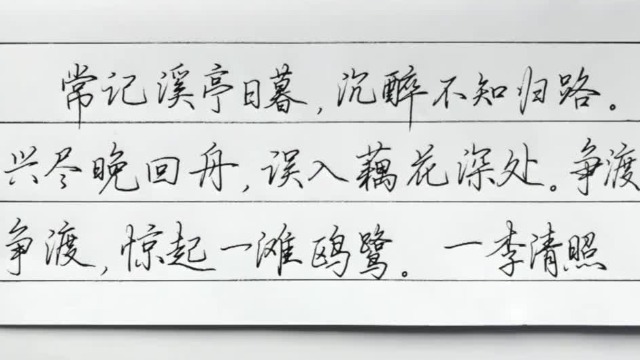 常记溪亭日暮,沉醉不知归路。
兴尽晚回舟,误入藕花深处。争渡
争渡,惊起一滩鸥鹭。一李清照